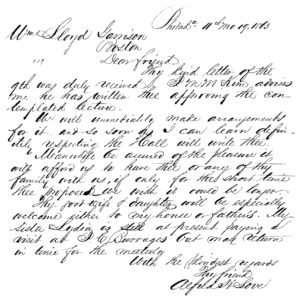 Philada 11th mo 19, 1863
Wm Lloyd Garrison
Boston
Dear friend
Thy kind letter of the
9th was duly received by J M McKim advises
me he has written thee approving the con
templated lecture.
We will immediately make arrangements
for it, and so soon as I can learn defin-
itely respecting the Hall will write thee
Meanwhile be assured of the pleasure it
will afford us to have thee or any of thy
family with us, if only for the short time
thee proposed, we wish it could be longer.
My good wife & daughter will be especially
welcome either to my house or fathers. My
sister Lydia is at present paying a
visit at J E Burrages but may return
in time for the meeting
With the kindest regards
Thy friend
Alfred H Love